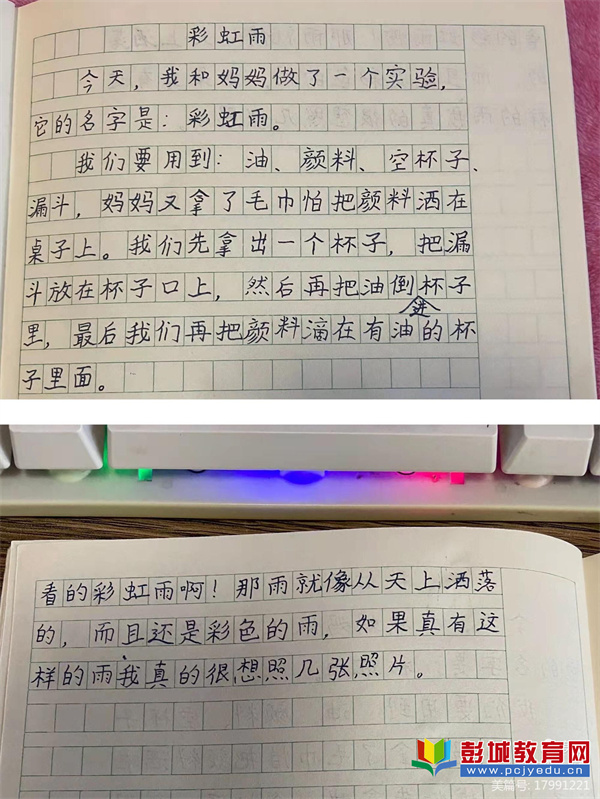 彩虹雨
今天，我和妈妈做了一个实验，
它的名字是：彩虹雨。
我们要用到：油、颜料、空杯子、
漏斗，妈妈又拿了毛巾怕把颜料洒在
桌子上。我们先拿出一个杯子，把漏
斗放在杯子口上，然后再把油倒进杯子
里，最后我们再把颜料滴在有油的杯
子里面。
看的彩虹雨啊！那雨就像从天上洒落
的，而且还是彩色的雨，如果真有这
样的雨我真的很想照几张照片。
彭城教育网
www.pcjyedu.cn
美篇号: 17991221